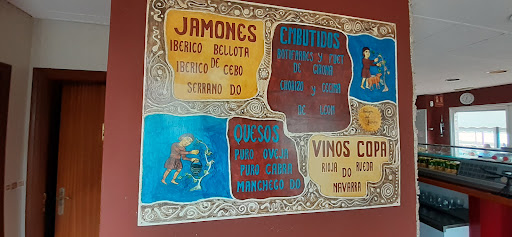 JAMONES
IBERICO BELLOTA
DE
IBERICO CEBO
SERRANO DO
EMBUTIDOS
BOTIFARRES Y FUET
DE GIRONA
CHORIZO Y CECINA
DE LEON
QUESOS
PURO OVEJA
PURO CABRA
MANCHEGO DO
VINOS COPA
RIOJA DO RUEDA
NAVARRA